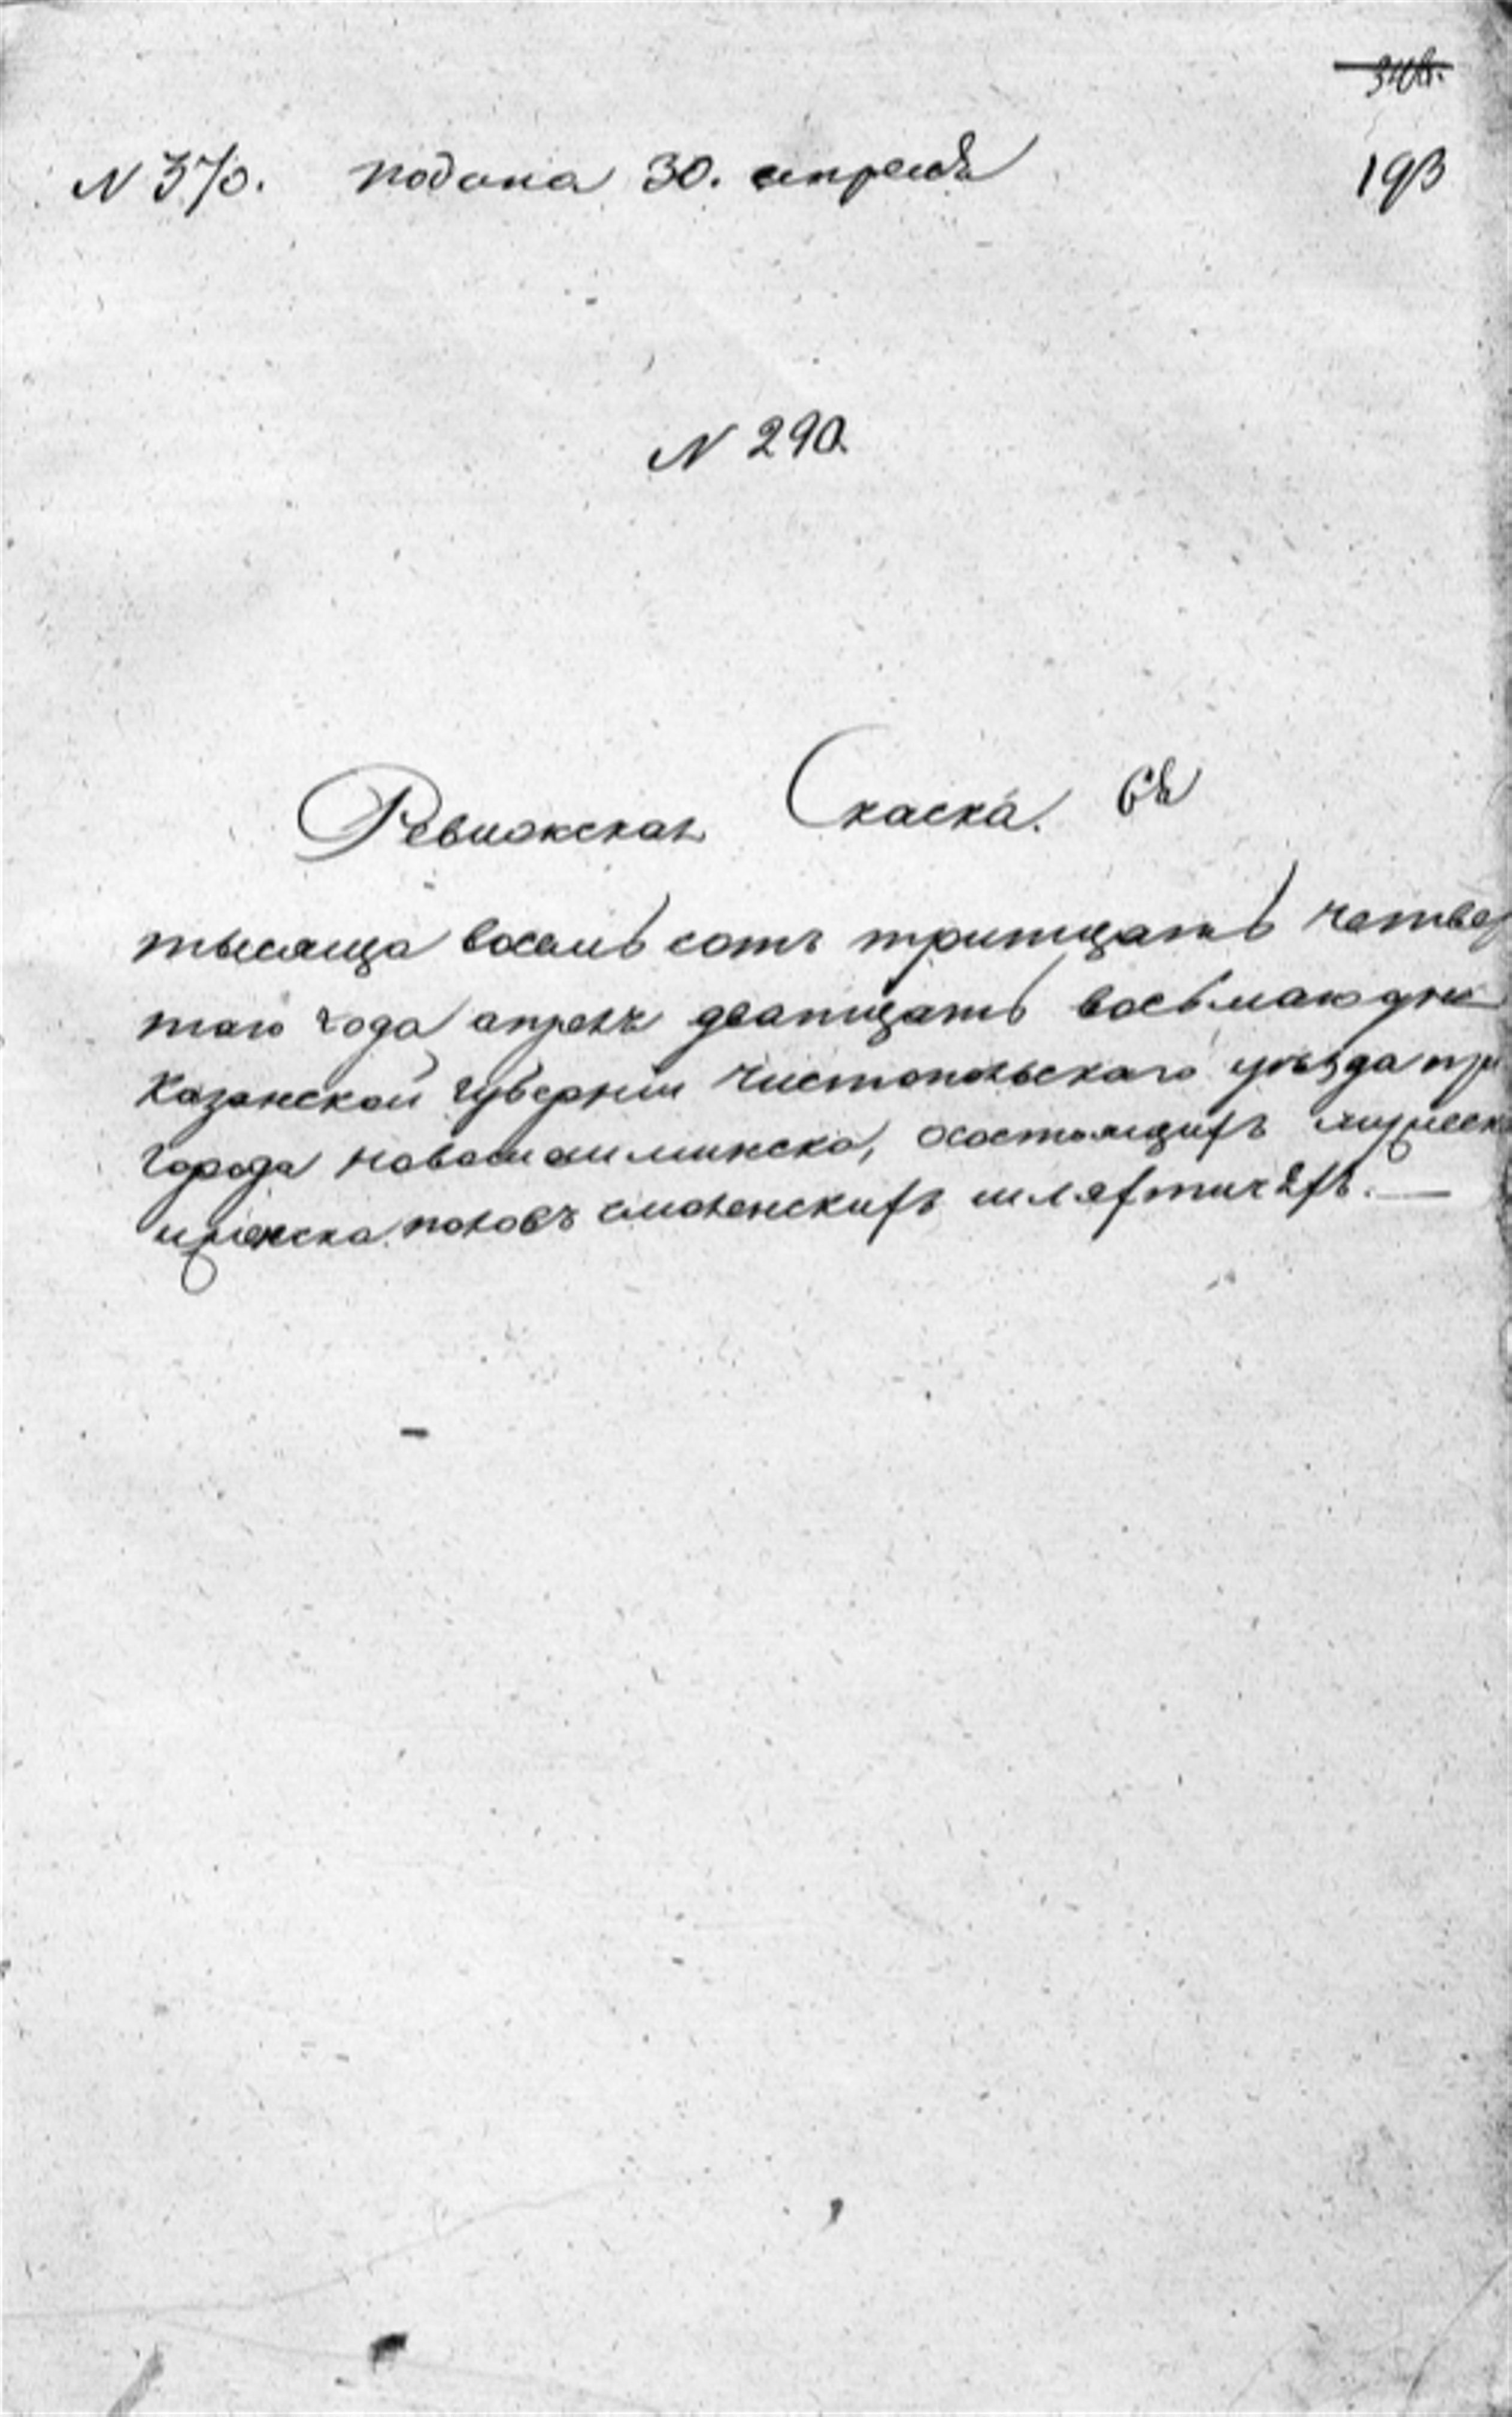 193
N 370. подана 30. апреля
N 290.
Ревижская Скаска.
тысяща восемь сотъ тритцать четвер
таго года апреля дватцать восьмаго дня
Казанской губерніи Чистопольскаго уѣзда при
города новошешминска, осостоящихъ мужеска
иженска половъ смоленскихъ шляхтичахъ.